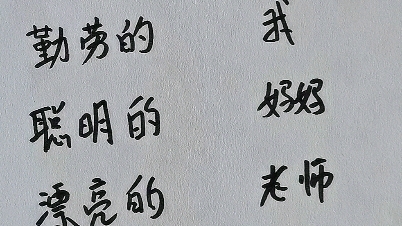 勤劳的 我
聪明的 妈妈
漂亮的 老师